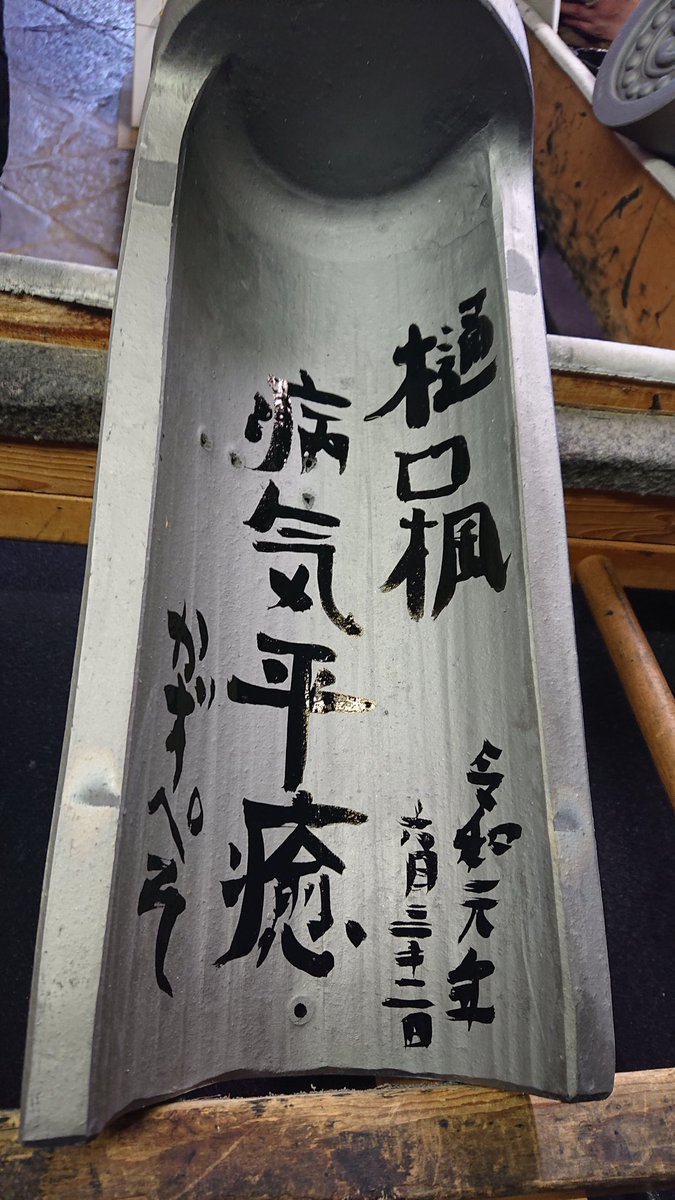 樋口楓
令和元年
六月三十二日
病気平癒
かずぺそ